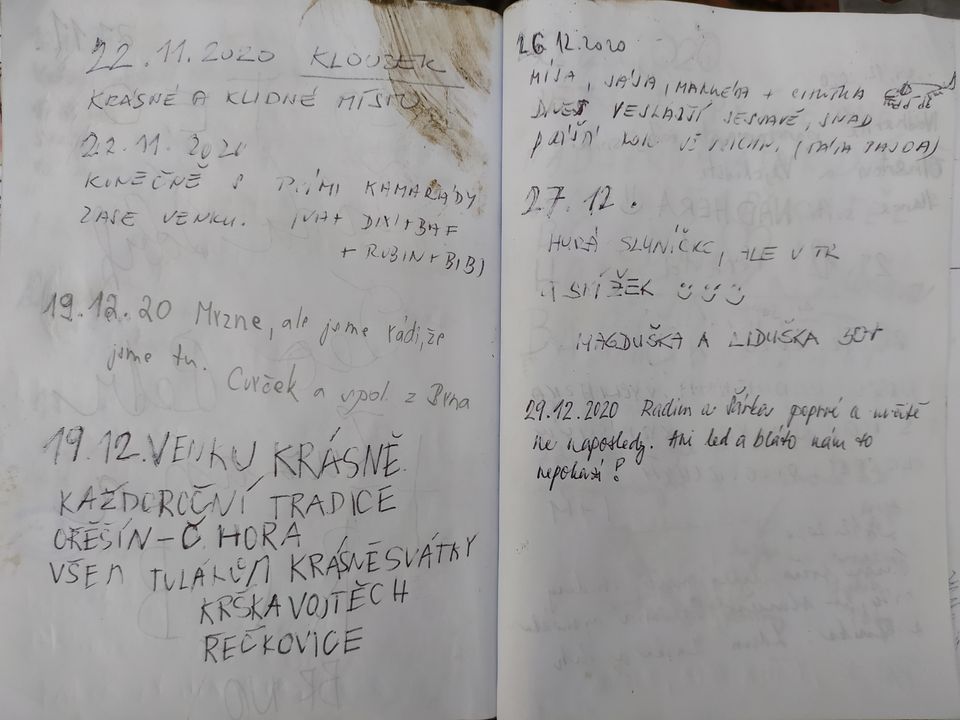 22.11.2020 KLOUSEK
KRÁSNÉ A KLIDNÉ MÍSTO
22.11.2020
KONEČNĚ S PSÍMI KAMARÁDY
ZASE VENKU. DIXI+BAF
+ RUBIN+BIBI
19.12.20 Mrzne, ale jsme rádi, že
jsme tu.
Cvrček a spol. z Brna
19.12. VENKU KRÁSNĚ.
KAŽDOROČNÍ TRADICE
OŘEŠÍN–Č. HORA
VŠEM TULÁKŮM KRÁSNÉ SVÁTKY
KRŠKA VOJTĚCH
ŘEČKOVICE
26.12.2020
MÍŠA, JÁJA, MARKÉTA +
DNES
PŘÍŠTÍ ROK
27.12.
HURÁ SLUNÍČKO, ALE V TR
A SNÍŽEK
MAGDUŠKA A LIDUŠKA 50+
29.12.2020 Radim a Šárka poprvé a určitě
ne naposledy. Ani led a bláto nám to
nepokazí!